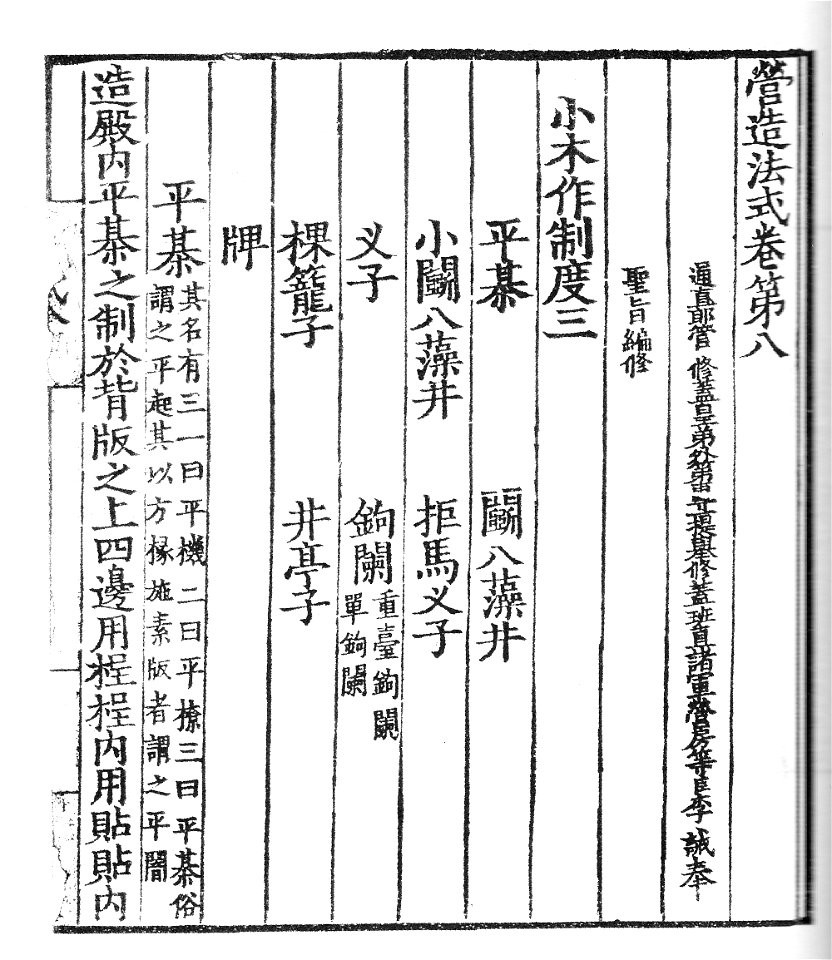 營造法式卷第八
通直郎管修蓋皇弟外第專一提舉修蓋班直諸軍營房等臣李誡奉
聖旨編修
小木作制度三
平棊 鬭八藻井
小鬭八藻井 拒馬义子
义子 鉤闌 重臺鉤闌
單鉤闌
棵籠子 井亭子
牌
平棊 其名有三一曰平機二曰平橑三曰平棊俗
謂之平起其以方椽施素版者謂之平闇
造殿内平棊之制於背版之上四邊用桯桯内用貼貼内